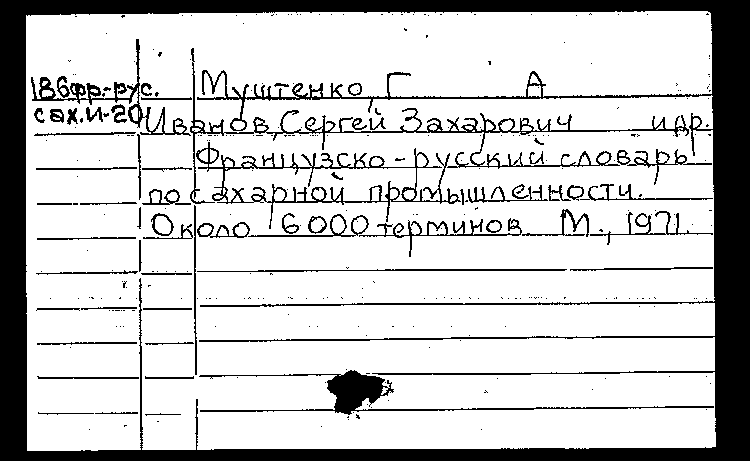 186фр.-рус. Муштенко, Г А
сах.И-20 Иванов, Сергей Захарович и др.
Французско-русский словарь
по сахарной промышленности.
Около 6000 терминов. М., 1971.